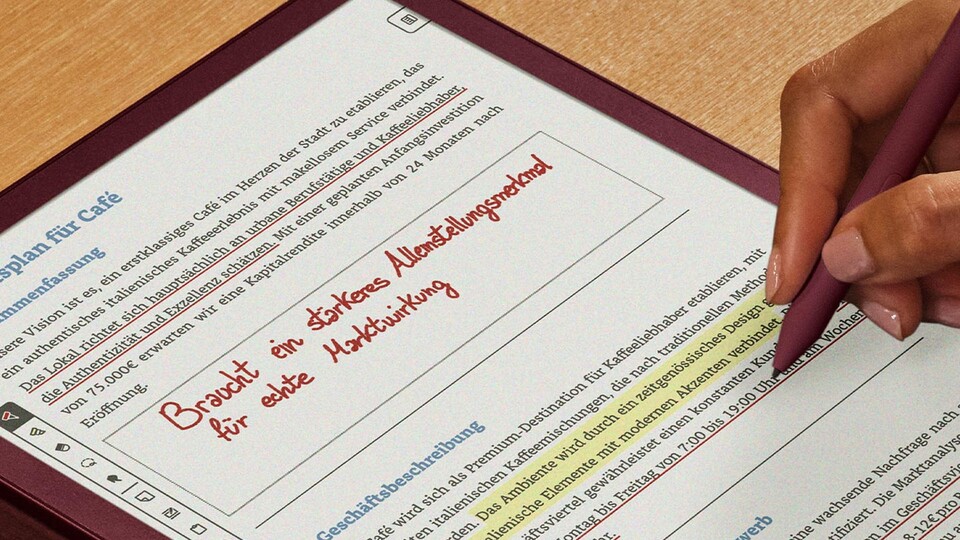 splan für Café
mmenfassung
sere Vision ist es, ein erstklassiges Café im Herzen der Stadt zu etablieren, das
ein authentisches italienisches Kaffeeerlebnis mit makellosem Service verbindet.
Das Lokal richtet sich hauptsächlich an urbane Berufstätige und Kaffeeliebhaber,
die Authentizität und Exzellenz schätzen. Mit einer geplanten Anfangsinvestition
von 75.000€ erwarten wir eine Kapitalrendite innerhalb von 24 Monaten nach
Eröffnung.
Braucht ein starkeres Alleinstellungsmerkmal
für echte Marktwirkung
Geschäftsbeschreibung
Café wird sich als Premium-Destination für Kaffeeliebhaber etablieren, mit
italienischen Kaffeemischungen, die nach traditionellen Metho
den. Das Ambiente wird durch ein zeitgenössisches Design
lienische Elemente mit modernen Akzenten verbindet
äftsviertel gewährleistet einen konstanten Kun
ntag bis Freitag von 7:00 bis 19:00 Uhr und am Wochen
Uhr.
werb
ine wachsende Nachfrage nach
tifiziert. Die Marktanalyse
m im Geschäftsvi
8-12€ pro